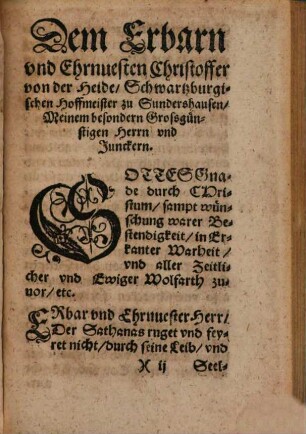 Dem Erbarn
vnd Ehrnuesten Christoffer
von der Heide/ Schwartzburgi-
schen Hoffmeister zu Sundershausen/
Meinem besondern Grosgün-
stigen Herrn vnd
Junckern.
GOTTES Gna-
de durch CHri-
stum/ sampt wün-
schung warer Be-
stendigkeit/ in Er-
kanter Warheit/
vnd aller Zeitli-
cher vnd Ewiger Wolfarth zu-
uor/ etc.
ERbar vnd Ehrnuester Herr/
Der Sathanas ruget vnd fey-
ret nicht/ durch seine Leib/ vnd
X ij Seel-